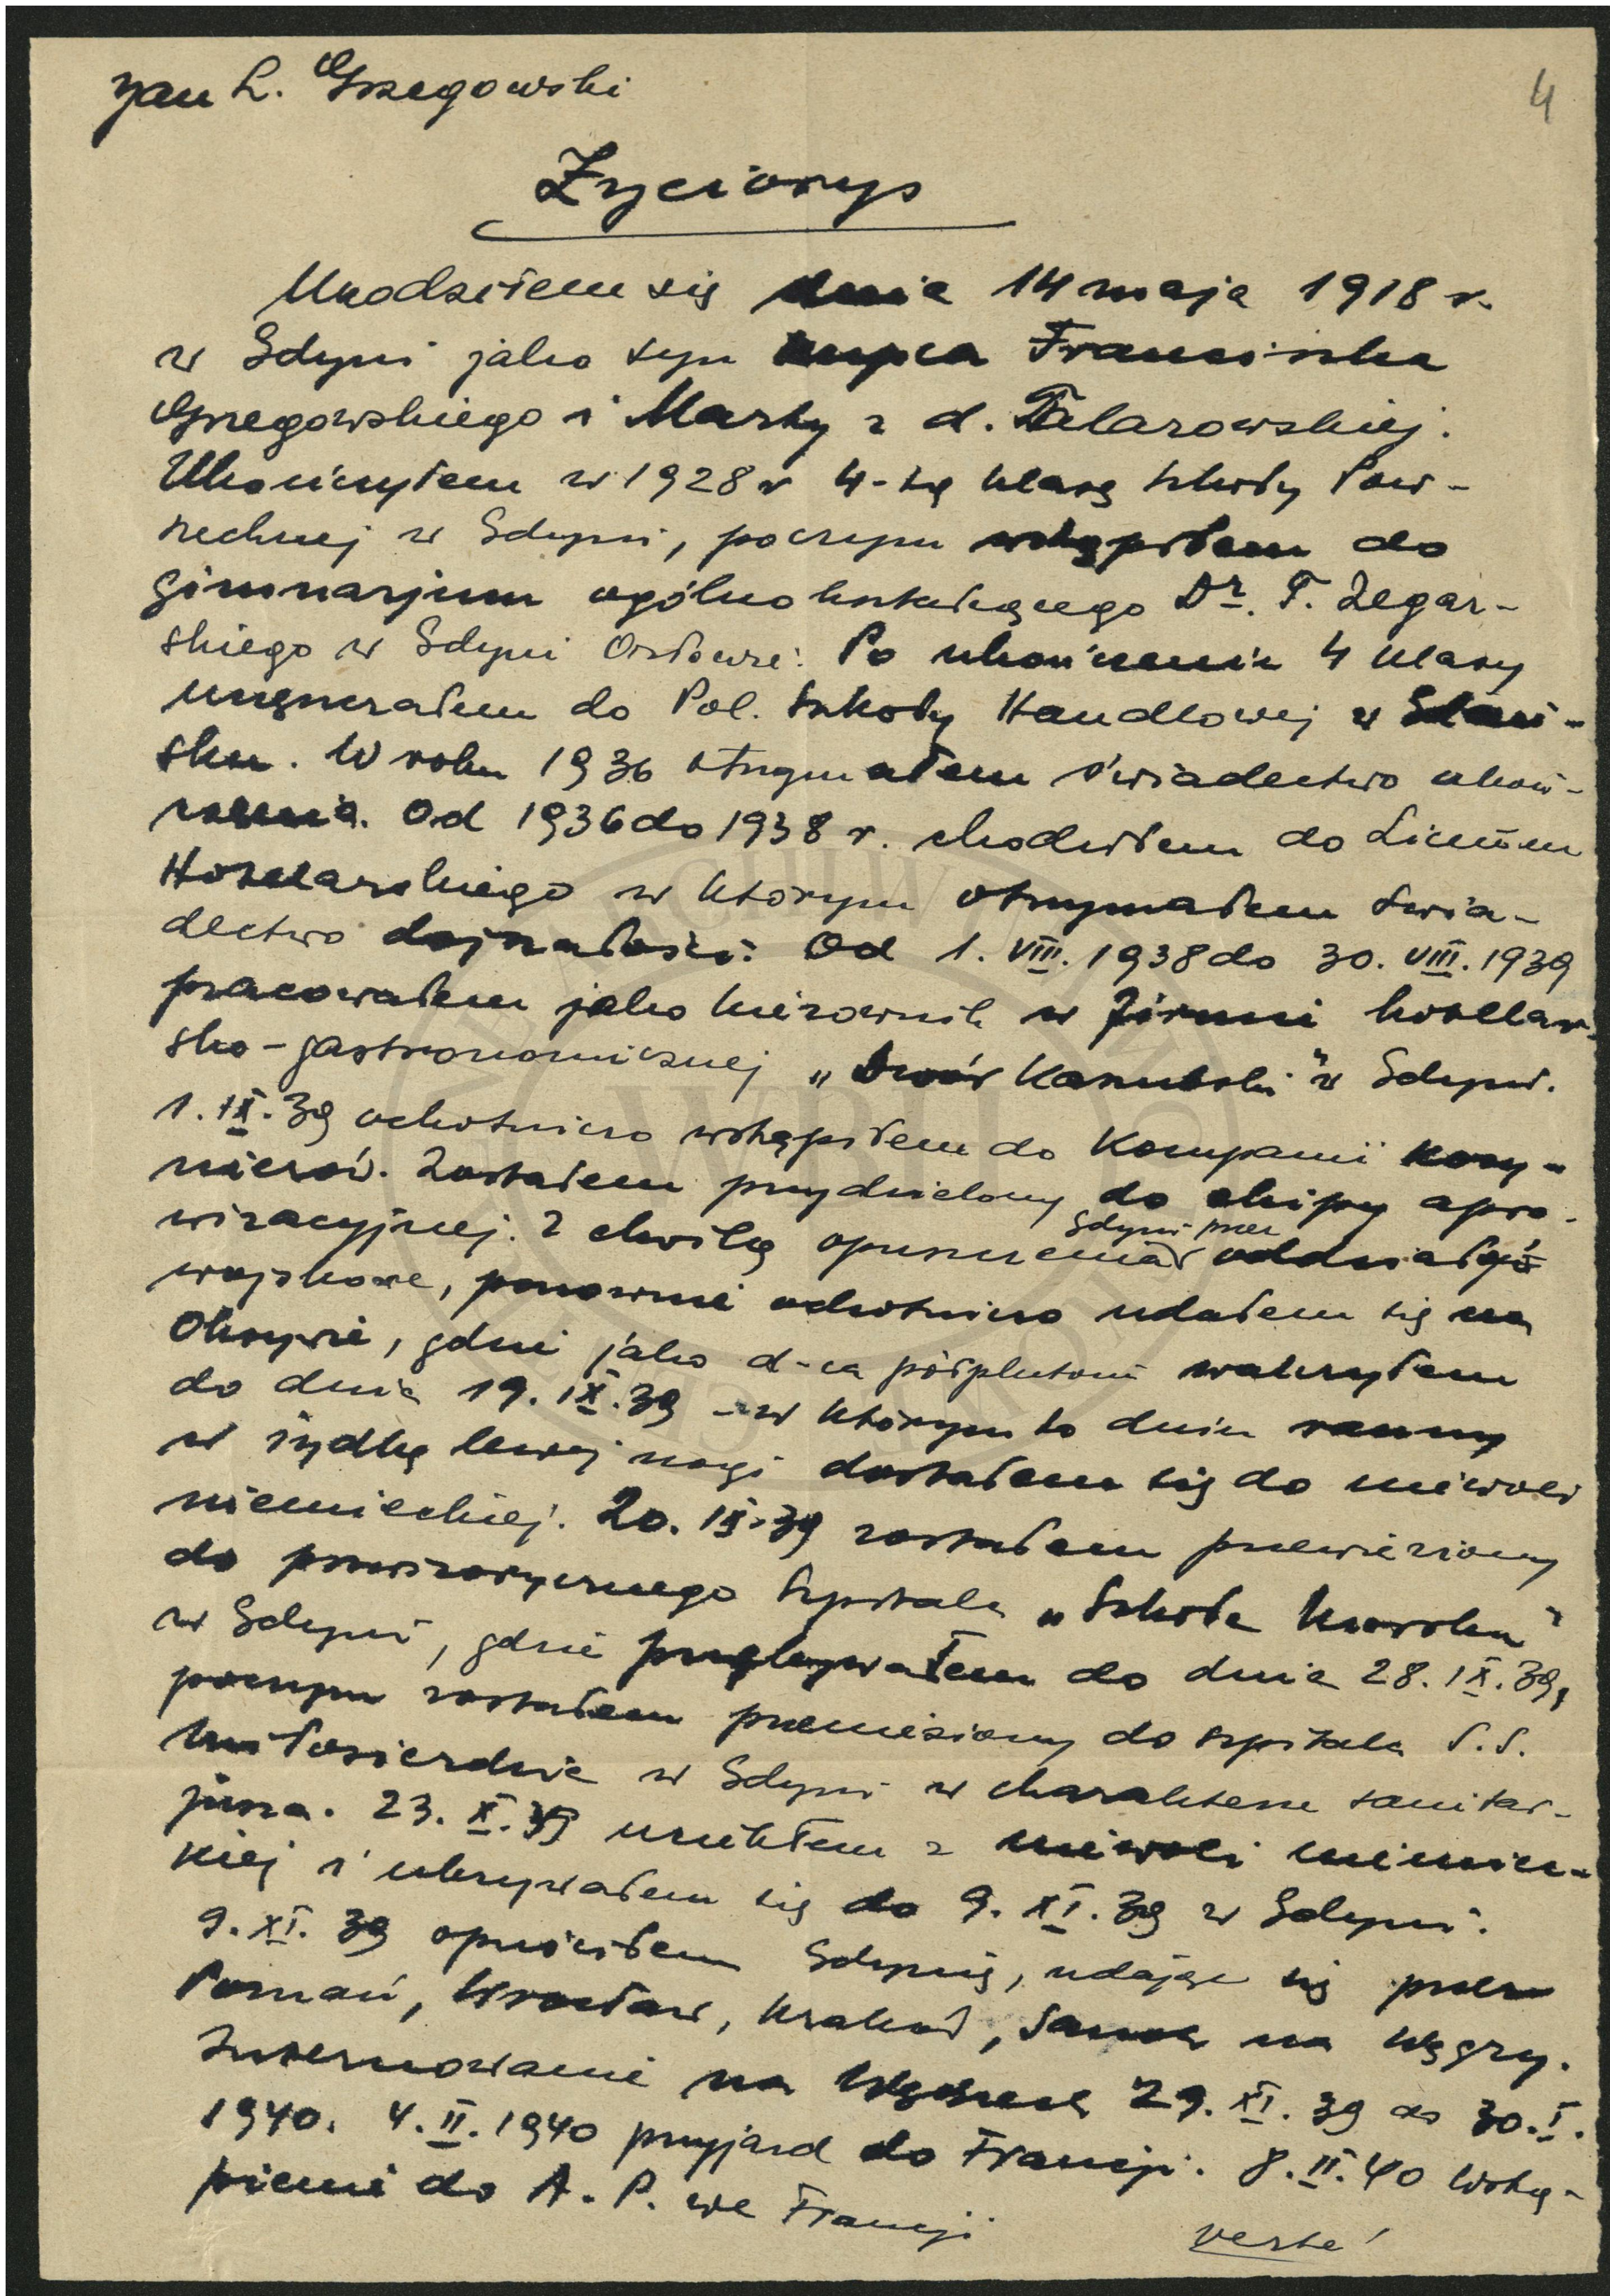 Jan L. Grzegowski
4
Życiorys
Urodziłem się dnia 14 maja 1918 r.
w Gdyni jako syn kupca Franciszka
Grzegowskiego i Marty z d. Talarowskiej.
Ukończyłem w 1928 r 4-tą klasę szkoły Pow-
szechnej w Gdyni, poczym wstąpiłem do
gimnazjum ogólnokształcącego Dr. T. Zegar-
skiego w Gdyni Orłowie. Po ukończeniu 4 klasy
uczęszczałem do Pol. Szkoły Handlowej w Gdań-
sku. W roku 1936 otrzymałem świadectwo ukoń-
czenia. Od 1936 do 1938 r. chodziłem do Liceum
Hotelarskiego w którym otrzymałem świa-
dectwo dojrzałości. Od 1. VIII. 1938 do 30. VIII. 1939
pracowałem jako kierownik w firmie hotelar-
sko-gastronomicznej „Dwór Kaszubski" w Gdyni.
1. IX. 39 ochotniczo wstąpiłem do Kompanii kosy-
nierów. Zostałem przydzielony do ekipy apro-
wizacyjnej. Z chwilą opuszczenia Gdyni przez oddziały
wojskowe, ponownie ochotniczo udałem się na
Oksywie, gdzie jako d-ca półplutonu walczyłem
do dnia 19. IX. 39 - w którym to dniu ranny
w łydkę lewej nogi dostałem się do niewoli
niemieckiej. 20. IX. 39 zostałem przewieziony
do prowizorycznego szpitala „Szkoła Morska"
w Gdyni, gdzie przebywałem do dnia 28. IX. 39,
poczym zostałem przeniesiony do szpitala S.S.
Miłosierdzia w Gdyni w charakterze sanitar-
jusza. 23. X. 39 uciekłem z niewoli niemiec-
kiej i ukrywałem się do 9. XI. 39 w Gdyni.
9. XI. 39 opuściłem Gdynię, udając się przez
Poznań, Wrocław, Kraków, Sanok na Węgry.
Internowanie na Węgrzech 29. XI. 39 do 30. I.
1940. 4. II. 1940 przyjazd do Francji. 8. II. 40 wstą-
pienie do A. P. we Francji
verte!